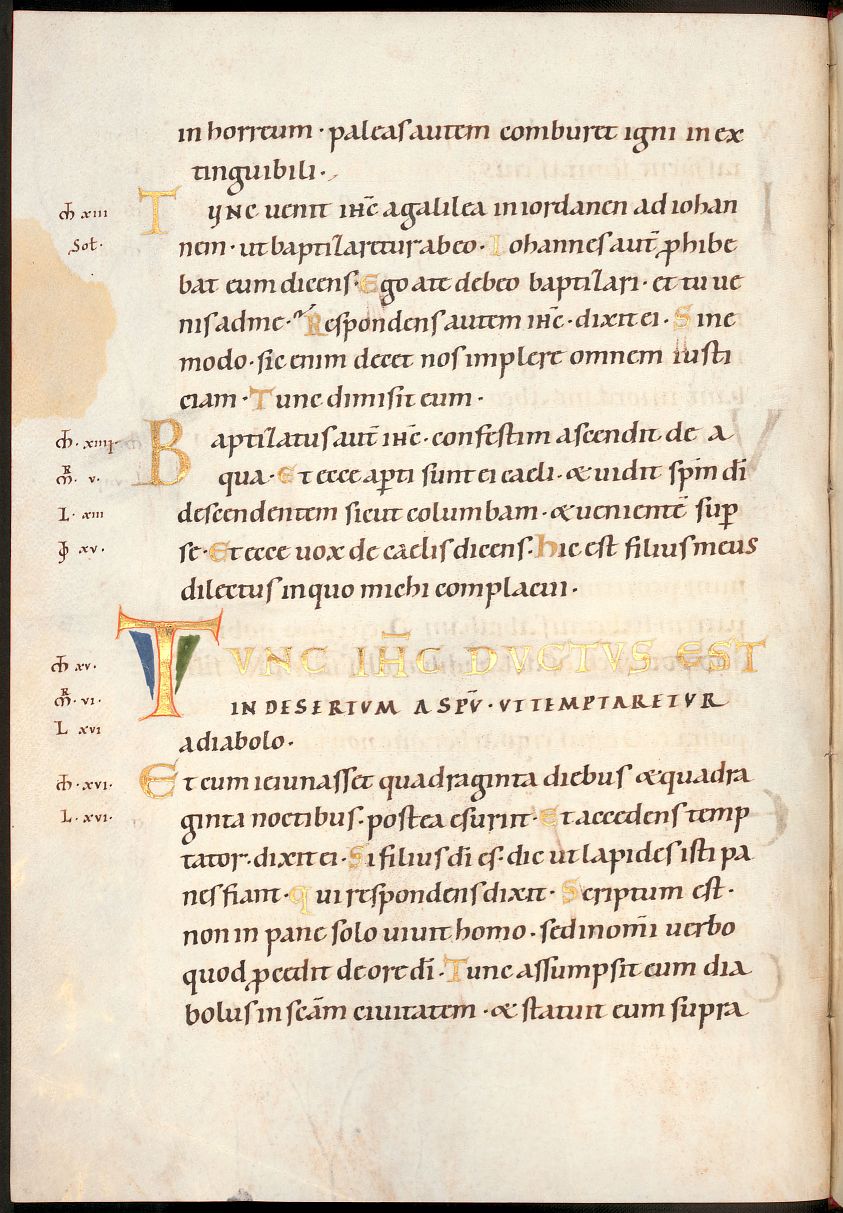 in horreum · paleas autem comburet igni in ex
tinguibili ·
Tunc uenit ihc̅ a galilea in iordanen ad iohan
nem · ut baptizaretur ab eo · Iohannes aut̅ ꝓhibe
bat eum dicens · Ego a te debeo baptizari · et tu ue
nis ad me · Respondens autem ihc̅ · dixit ei · Sine
modo · sic enim decet nos implere omnem iusti
ciam · Tunc dimisit eum ·
Baptizatus aut̅ ihc̅ · confestim ascendit de a
qua · Et ecce aꝑti sunt ei caeli · & uidit sp̅m di̅
descendentem sicut columbam · & uenientē suꝑ
se · Et ecce uox de caelis dicens · hic est filius meus
dilectus in quo michi complacui ·
TUNC IHC̅ DUCTUS EST
IN DESERTUM A SPU̅ · UT TEMPTARETUR
a diabolo ·
Et cum ieiunasset quadraginta diebus & quadra
ginta noctibus · postea esuriit · Et accedens temp
tator · dixit ei · Si filius di̅ es · dic ut lapides isti pa
nes fiant · Qui respondens dixit · Scriptum est ·
non in pane solo uiuit homo · sed in om̅i uerbo
quod ꝓcedit de ore di̅ · Tunc assumpsit eum dia
bolus in sc̅am ciuitatem · & statuit eum supra
xiii
Sol̅ ·
· xiiii ·
· v ·
L · xiii
· xv ·
xv ·
· vi ·
L xvi
· xvi ·
L · xvi ·